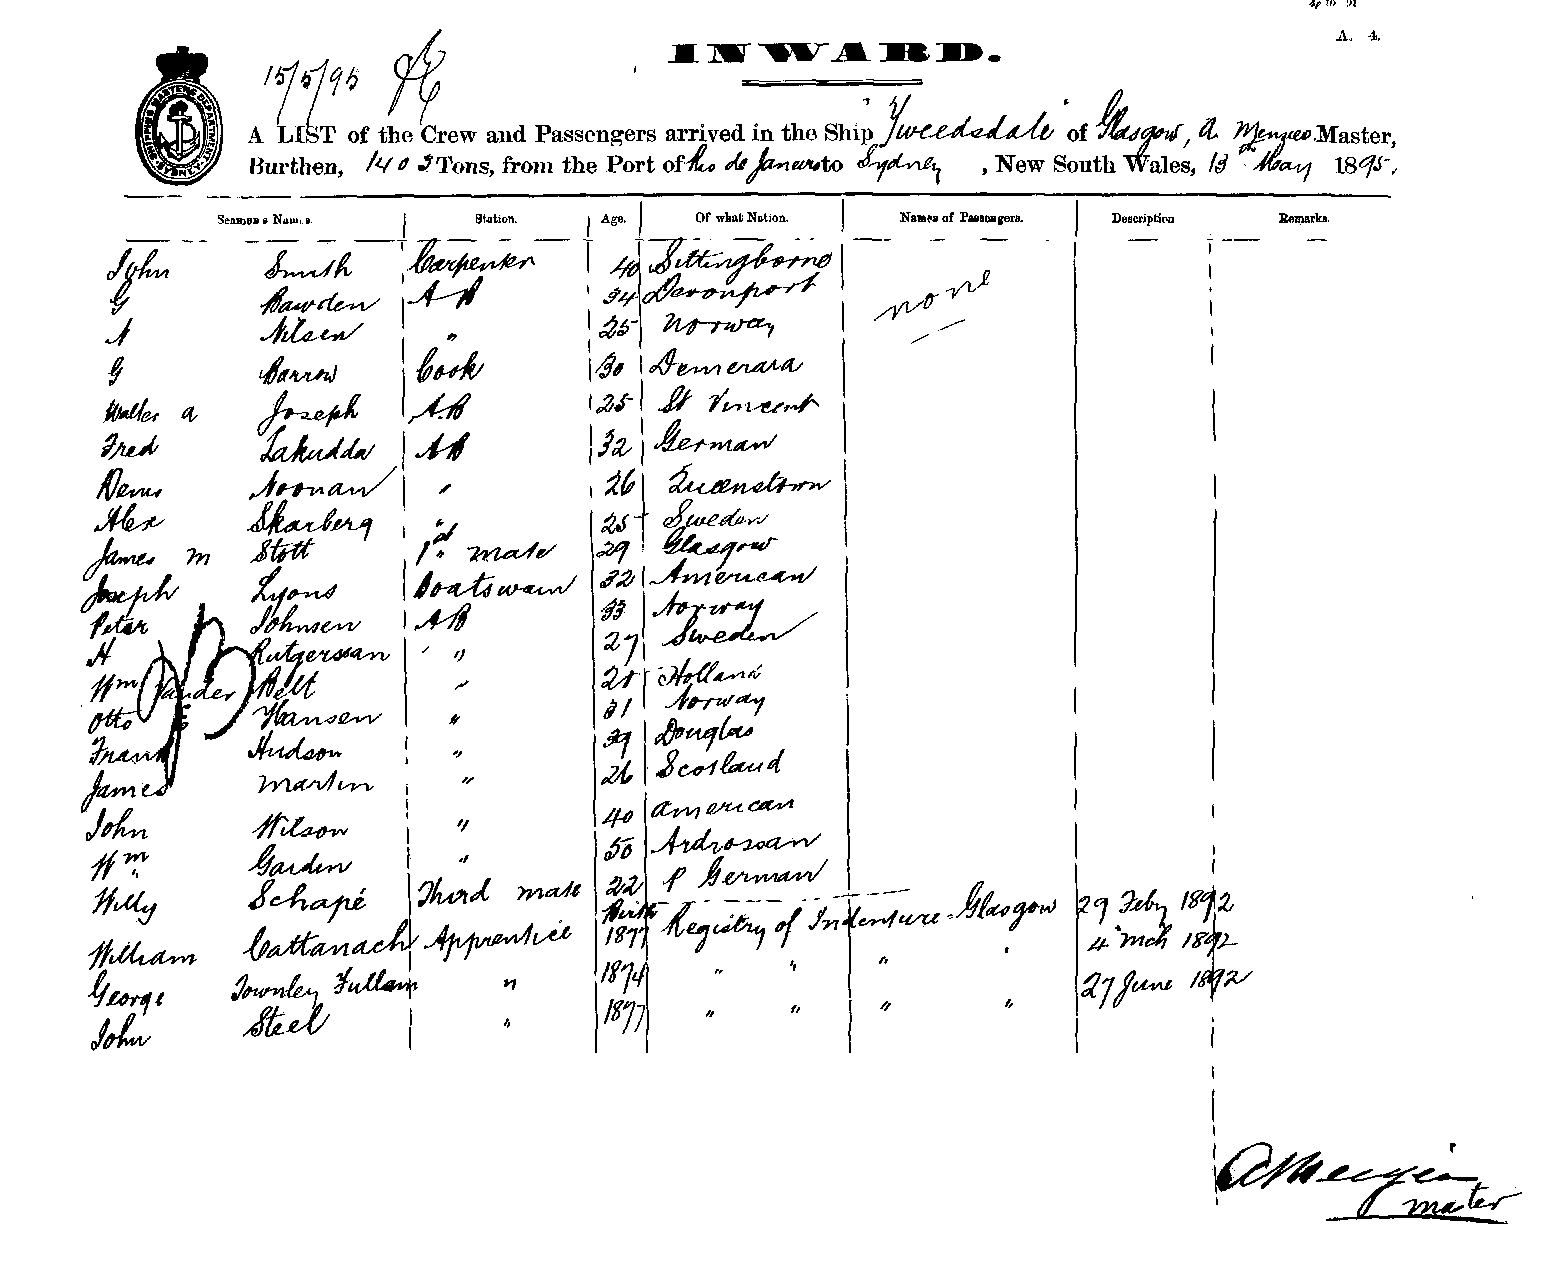 A. 4.
15/5/95
INWARD.
A LIST of the Crew and Passengers arrived in the Ship "Tweedsdale" of Glasgow, A Menzies Master,
Burthen, 1403 Tons, from the Port of Rio de Janeiro to Sydney, New South Wales, 13th May 1895.
Seamen's Names. Station. Age. Of what Nation. Names of Passengers. Description Remarks.
John Smith Carpenter 40 Sittingborne
G Bawden AB 34 Devonport none
A Nilsen " 25 Norway
G Barrow Cook 30 Demerara
Walter A Joseph A.B 25 St Vincent
Fred Lakudda AB 32 German
Denis Noonan " 26 Queenstown
Alex Skarberg " 25 Sweden
James M Stott 1st mate 29 Glasgow
Joseph Lyons Boatswain 32 American
Peter Johnsen AB 33 Norway
H Rutgerssan " 27 Sweden
Wm Vander Belt " Holland
Otto Hansen " 31 Norway
Frank Hudson " 39 Douglas
James Martin " 26 Scotland
John Wilson " 40 American
Wm Garden " 50 Ardrossan
Willy Schapé Third mate 22 P German
William Cattanach Apprentice Birth 1877 Registry of Indenture Glasgow 29 Feby 1892
George Townley Fullam " 1874 " " " " 4 Mch 1892
John Steel " 1877 " " " " 27 June 1892
A Menzies
master